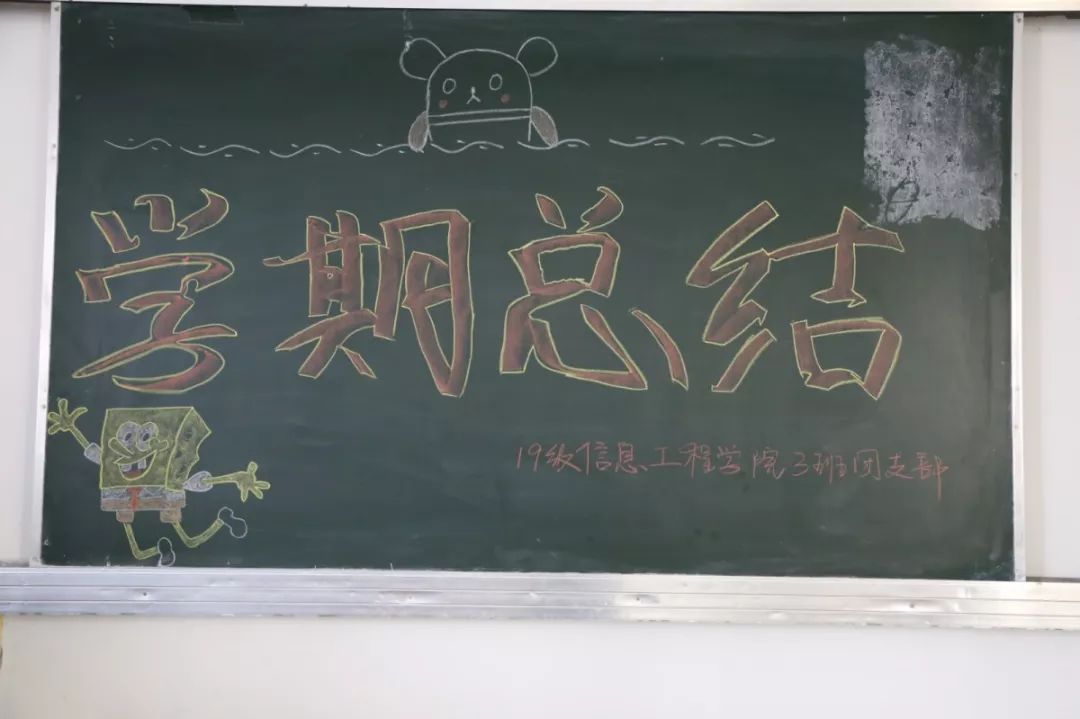 学期总结
19级信息工程学院3班团支部